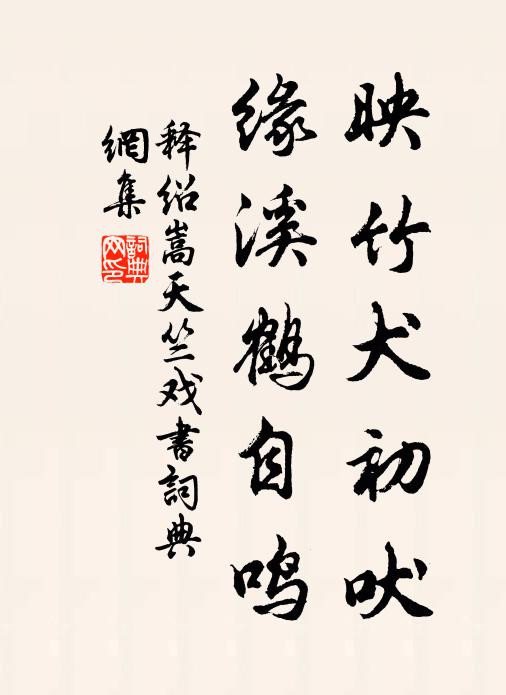 映竹犬初吠
缘溪鹤自鸣
释绍嵩天竺戏书詞典
網集
詞典
网印